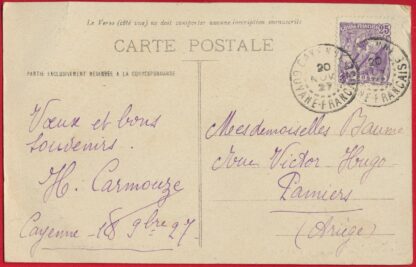 Le Verso (côté vue) ne doit comporter aucune inscription manuscrite
CARTE POSTALE
PARTIE EXCLUSIVEMENT RÉSERVÉE A LA CORRESPONDANCE
Vœux et bons
souvenirs.
H. Carmouze
Cayenne 18 9bre 27
25
CAYENNE
20
NOV
27
GUYANE-FRANÇAISE
20
Mesdemoiselles Baume
Victor Hugo
Pamiers
(Ariège)